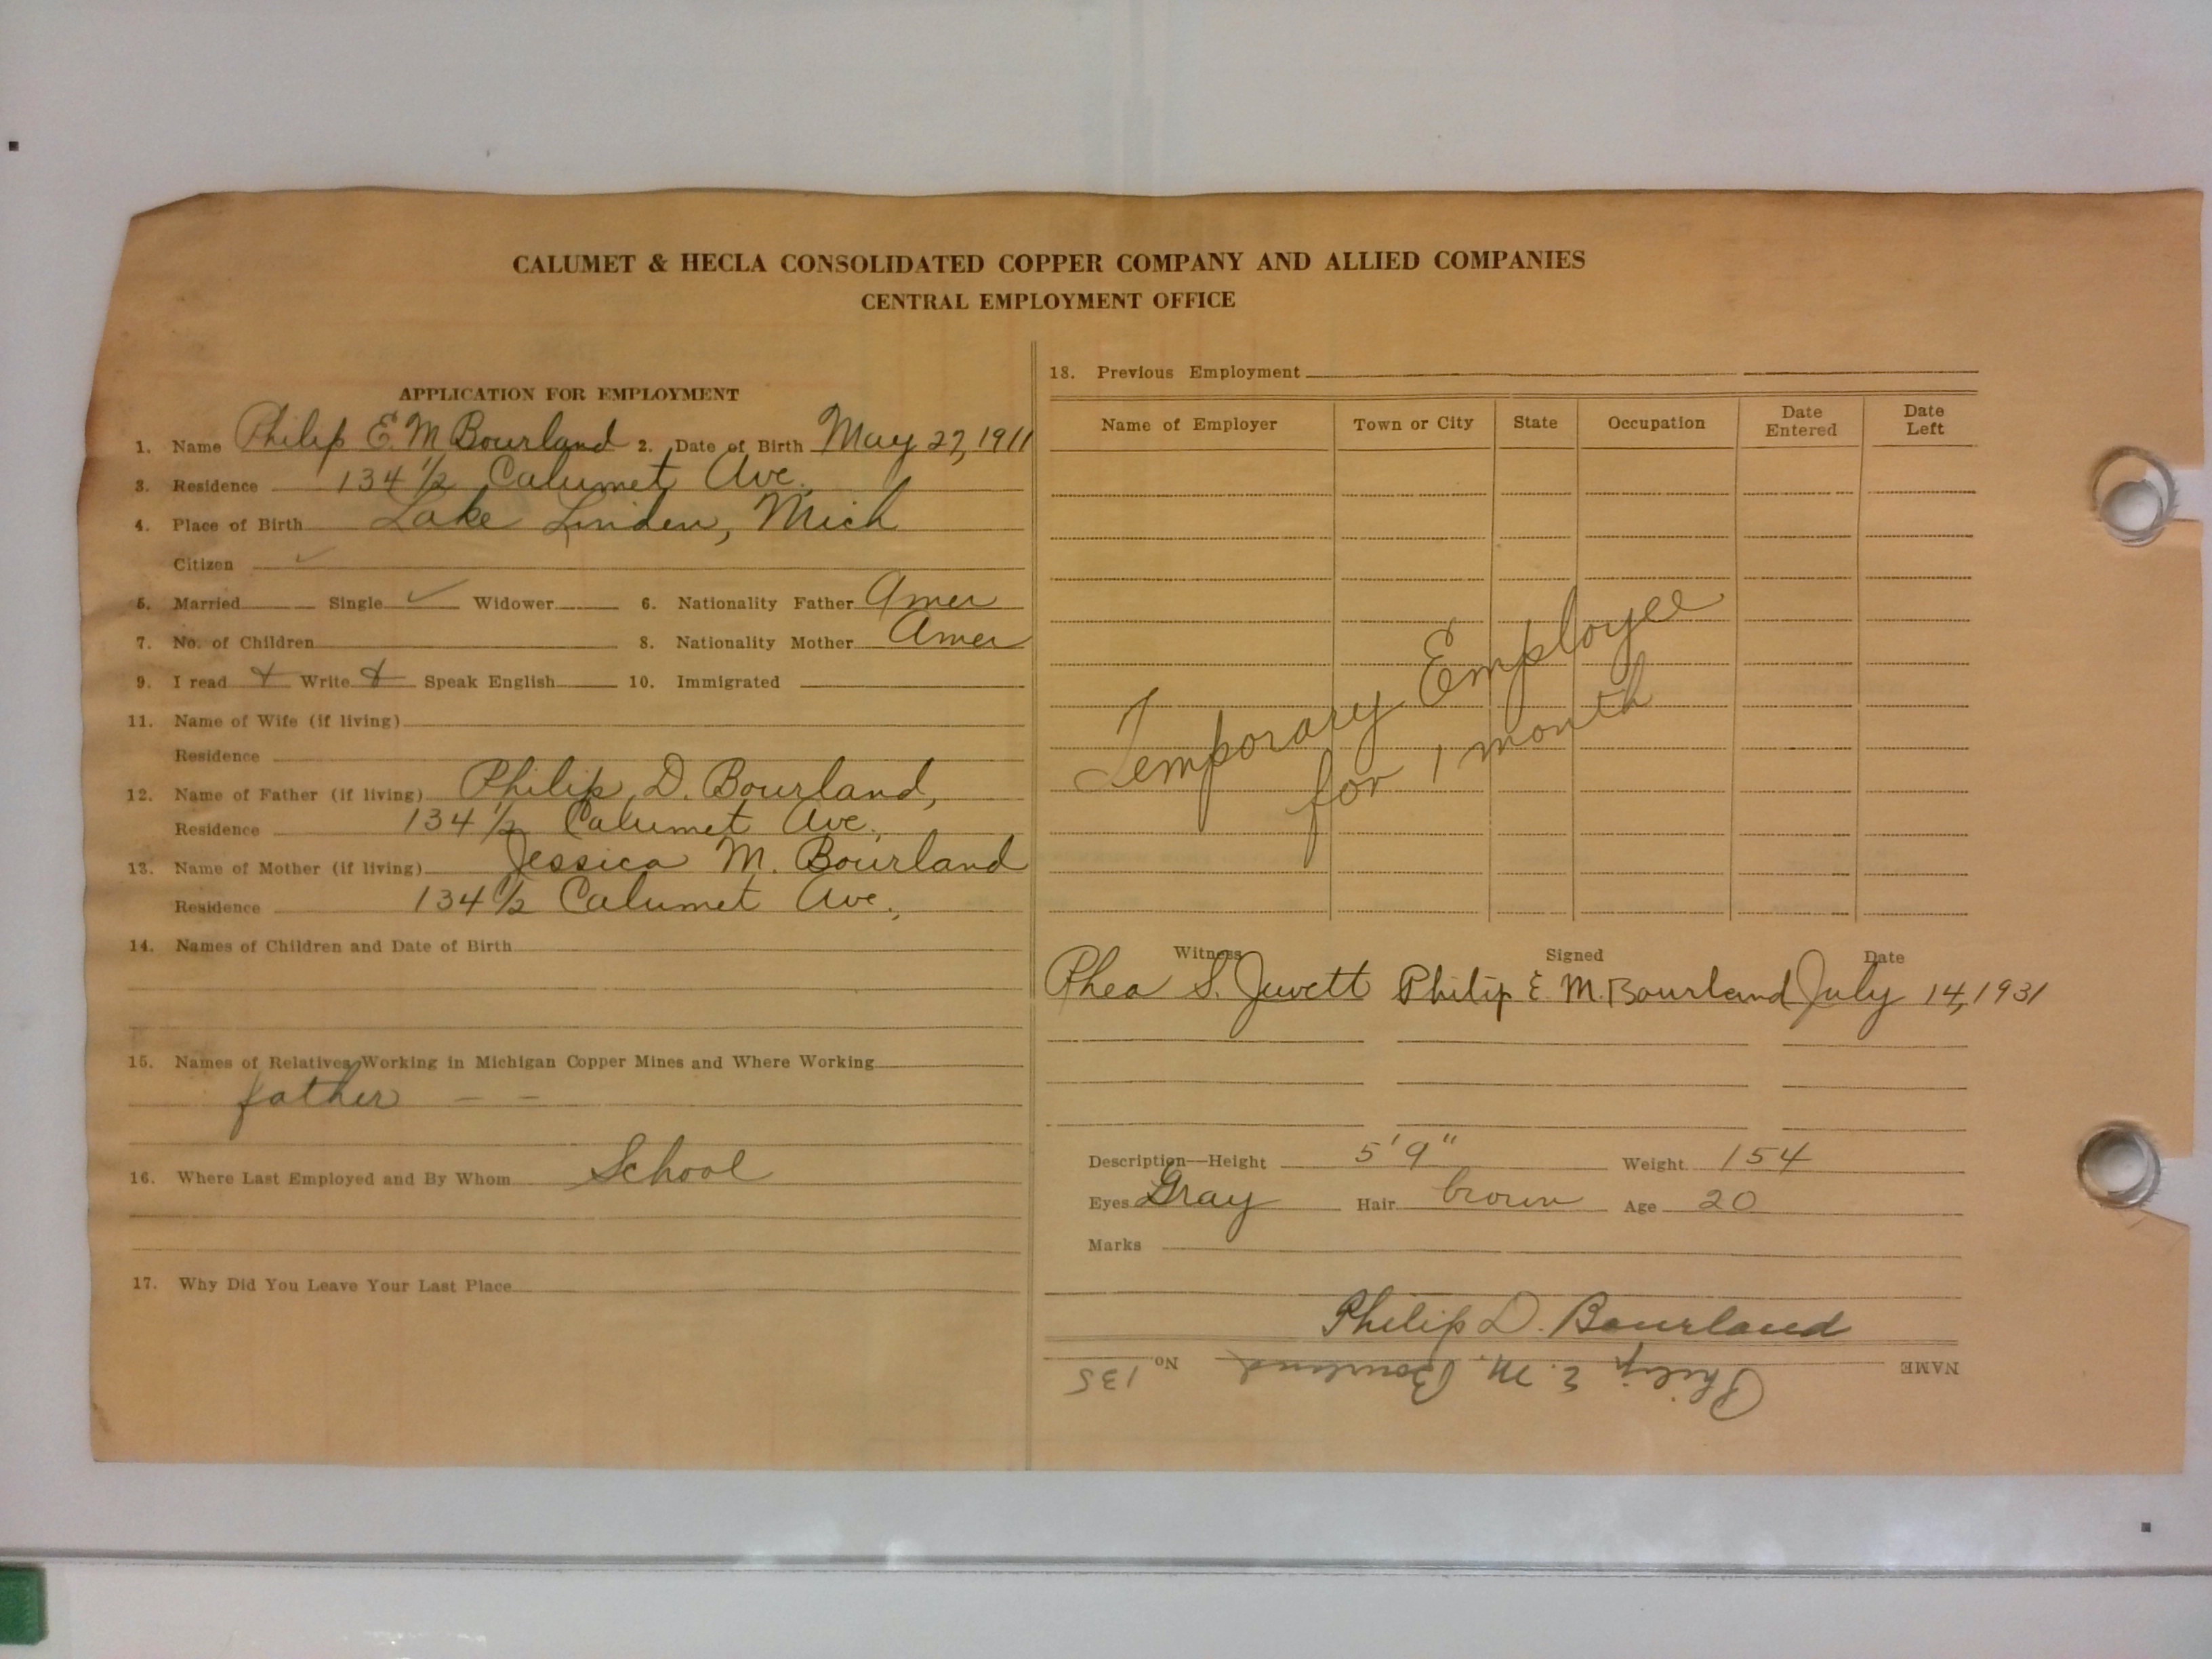 CALUMET & HECLA CONSOLIDATED COPPER COMPANY AND ALLIED COMPANIES
CENTRAL EMPLOYMENT OFFICE
APPLICATION FOR EMPLOYMENT
1. Name Philip E. M Bourland 2. Date of Birth May 27, 1911
3. Residence 134 1/2 Calumet Ave.
4. Place of Birth Lake Linden, Mich
Citizen ✓
5. Married Single ✓ Widower 6. Nationality Father Amer
7. No. of Children 8. Nationality Mother Amer
9. I read Write Speak English 10. Immigrated
11. Name of Wife (if living)
Residence
12. Name of Father (if living) Philip D. Bourland,
Residence 134 1/2 Calumet Ave.,
13. Name of Mother (if living) Jessica M. Bourland
Residence 134 1/2 Calumet Ave.,
14. Names of Children and Date of Birth
15. Names of Relatives Working in Michigan Copper Mines and Where Working
father – –
16. Where Last Employed and By Whom School
17. Why Did You Leave Your Last Place
18. Previous Employment
Name of Employer Town or City State Occupation Date Entered Date Left
Temporary Employee
for 1 month
Witness Signed Date
Rhea S. Philip E. M. Bourland July 14, 1931
Description—Height 5'9" Weight 154
Eyes Gray Hair brown Age 20
Marks
Philip D. Bourland
NAME Philip E. M. Bourland No 135